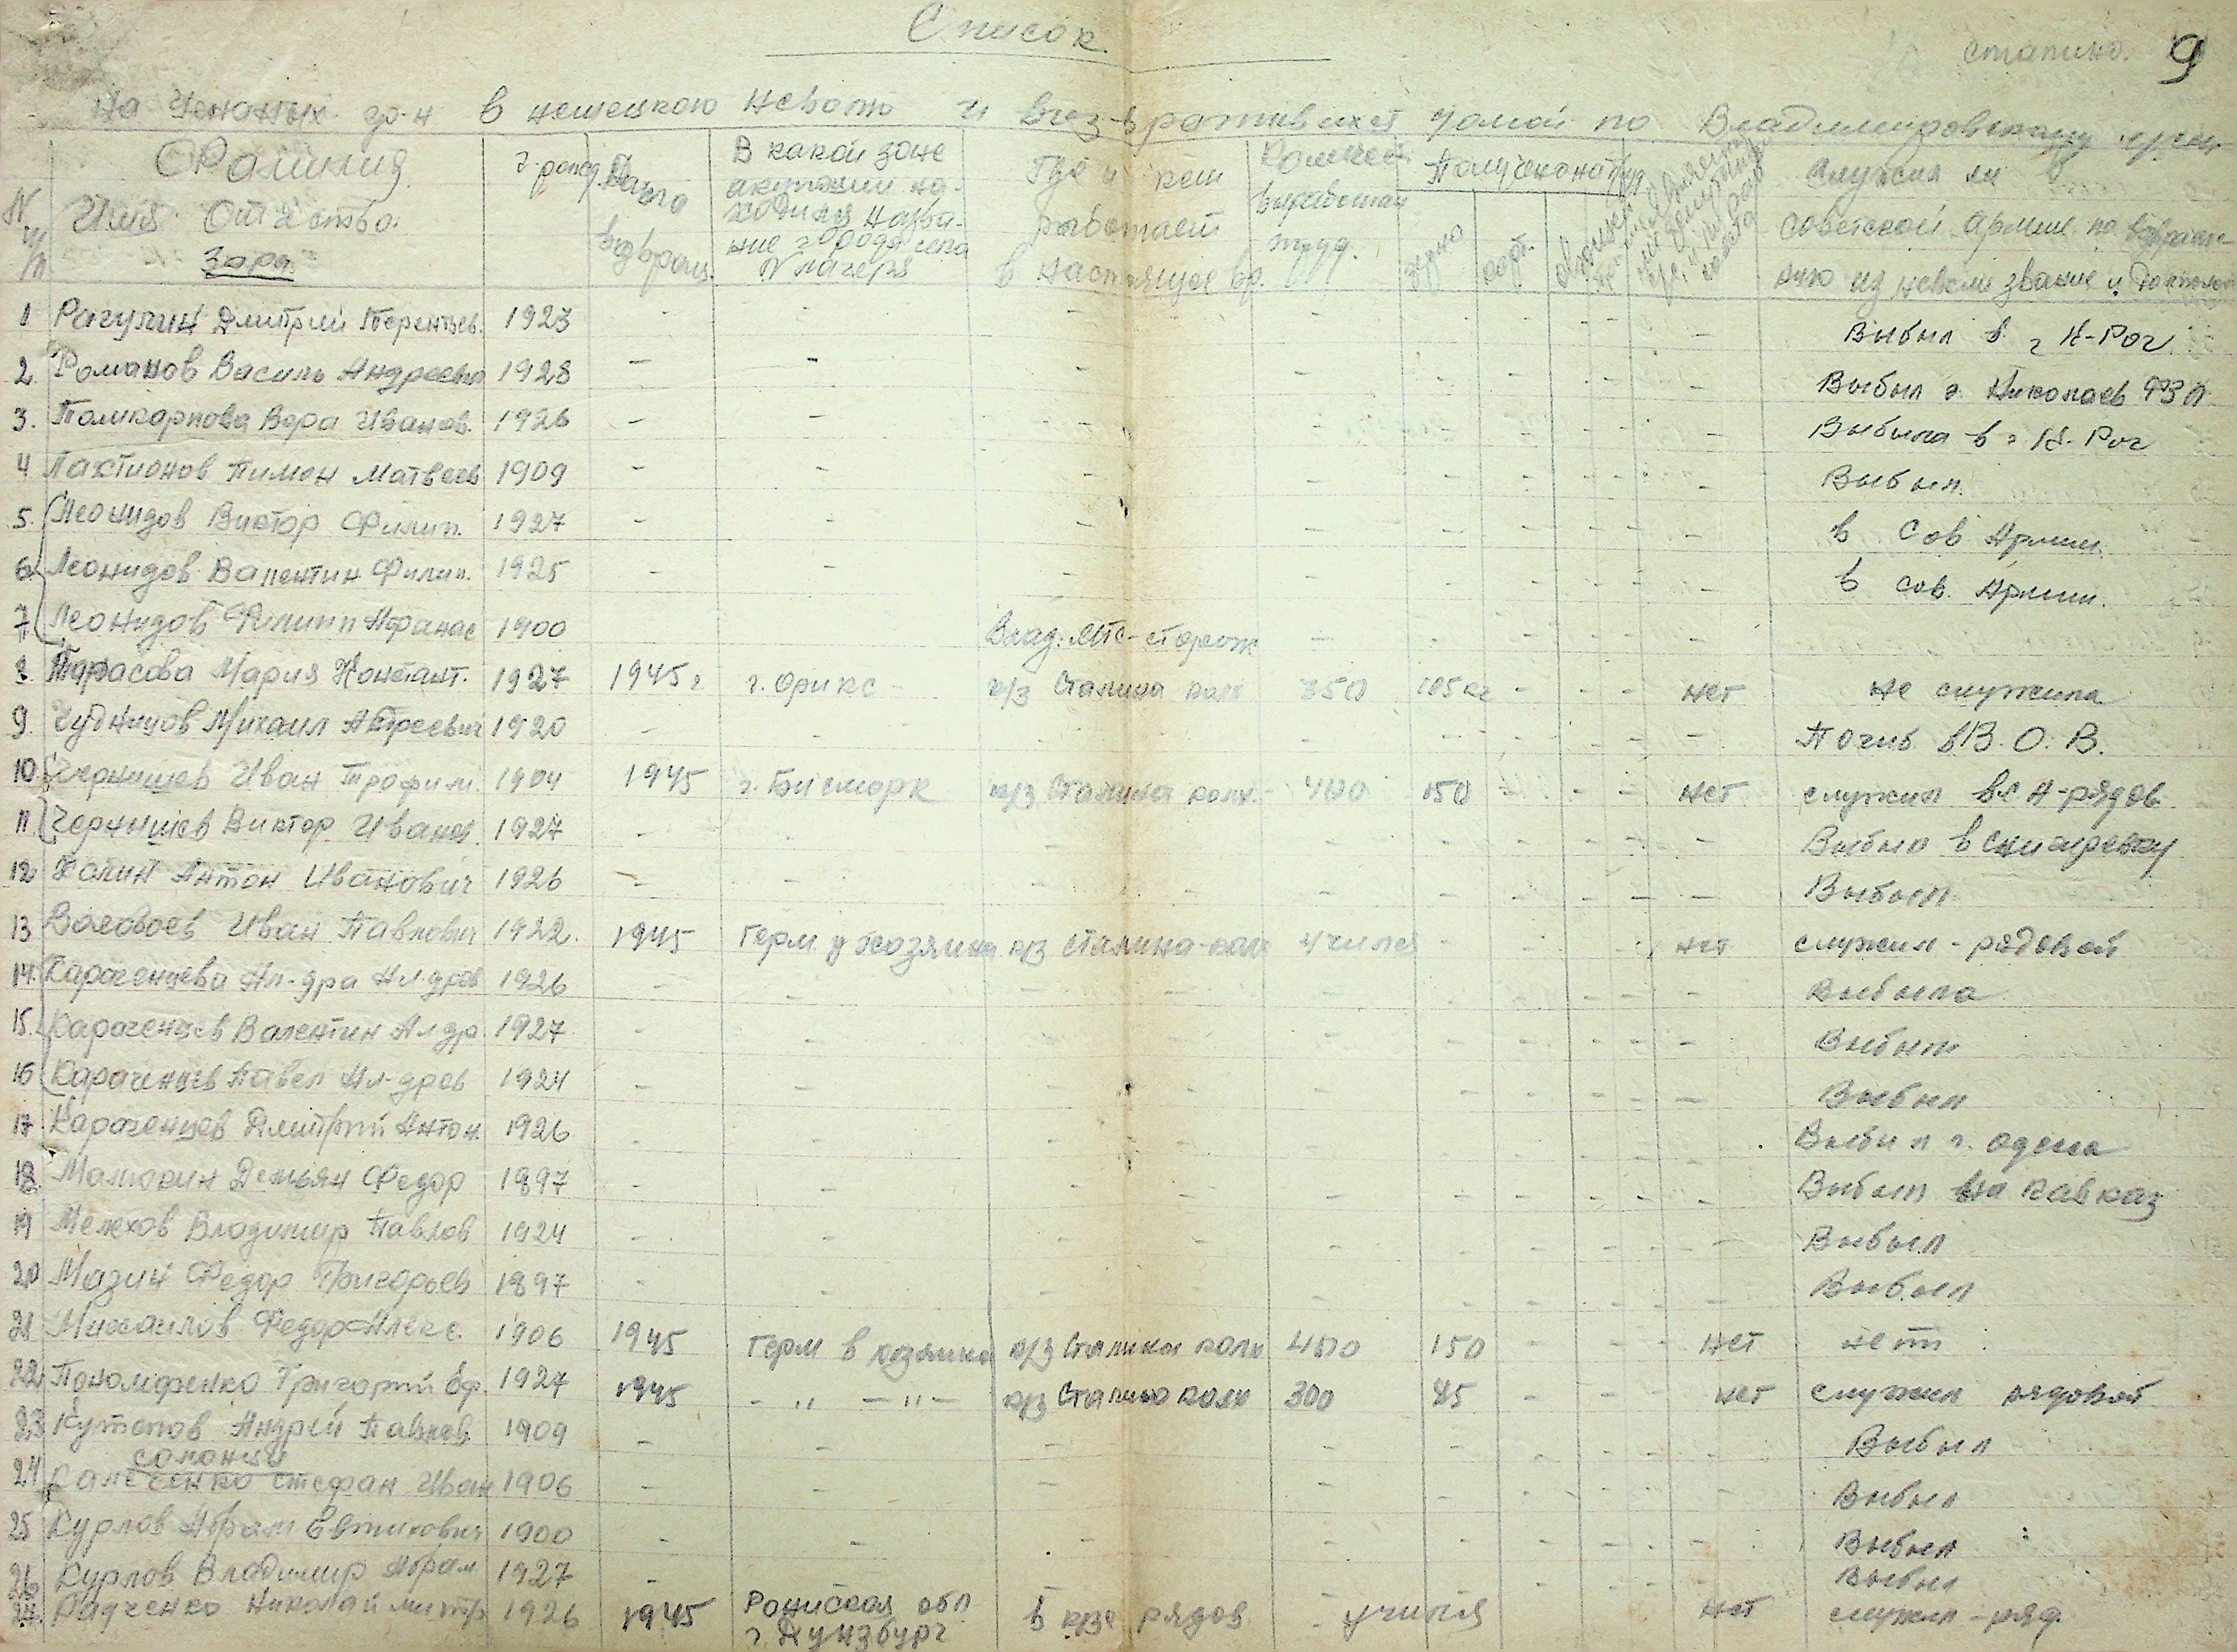 Список
сталино. 9
на Угнаных гр-н в немецкою неволю и воз-вратившихся домой по Владимировскому
N п/п
Фамилия Имя Отчество. Зоря
г. рожд.
Дата возвращ.
В какой зоне окупации находился Название города села N лагеря
Где и кем работает в настоящие вр.
Количест. выработан труд.
Получено на труд
зерно
карт.
Служил ли в советской Армие по возращению из неволи звание и должность
1 Рагулин Дмитрий Терентьев. 1923 - - - - - - - Выбыл в г К-Рог
2. Романов Василь Андреевич 1928 - - - - - - - Выбыл г. Николаев ФЗО
3. Поликарпова Вера Иванов. 1926 - - - - - - - Выбыла в г К-Рог
4 Лактионов Пимон Матвеев 1909 - - - - - - - Выбыл.
5. Леонидов Виктор Филип. 1927 - - - - - - - в Сов Армии.
6 Леонидов Валентин Филип. 1925 - - - - - - - в сов. Армии.
7 Леонидов Филипп Афанас 1900 Влад. МТС-сторож - - - - -
8. Тарасова Мария Констант. 1927 1945 г. г. Орикс - к/з Сталина колх 350 105 кг - - - нет не служила
9. Чудницов Михаил Андреевич 1920 - - - - - - - Погиб в В.О.В.
10 Чернышев Иван Трофим. 1904 1945 г. Бисморк к/з Сталина колх. 400 150 - - - нет служил в с А-рядов.
11 Чернышев Виктор Иванов. 1927 - - - - - - - Выбыл в Снигиревку
12 Халин Антон Иванович 1926 - - - - - - - Выбыл
13 Воловоев Иван Павлович 1922. 1945 Герм. у хозяина к/з Сталина-колх учился - - - нет служил - рядовой
14. Караченцева Ал-дра Ал.дров 1926 - - - - - - - Выбыла
15. Караченцев Валентин Ал др. 1927 - - - - - - - Выбыл
16 Караченцев Павел Ал-дров 1924 - - - - - - - Выбыл
17. Караченцев Дмитрий Антон. 1926 - - - - - - - Выбыл г. Одесса
18. Малюкин Демьян Федор 1897 - - - - - - - Выбыл на Кавказ
19 Мелехов Владимир Павлов 1924 - - - - - - - Выбыл
20 Мазин Федор Григорьев 1897 - - - - - - - Выбыл
21 Михаилов Федор Алекс. 1906 1945 Герм в хозяина к/з Сталина колх 400 150 - - - нет нет
22 Пономаренко Григорий Еф. 1927 1945 - " - " - к/з Сталина колх 300 45 - - - нет служил рядовой
23 Кутепов Андрей Павлов 1909 - - - - - - - Выбыл
24 Степан Иван 1906 - - - - - - - Выбыл
25 Курлов Абрам Евтихович 1900 - - - - - - - Выбыл
26 Курлов Владимир Абрам 1927 - - - - - - - Выбыл
27. Радченко Николай митр 1926 1945 обл г Гунзбург в к/зе рядов учился нет служил - ряд.